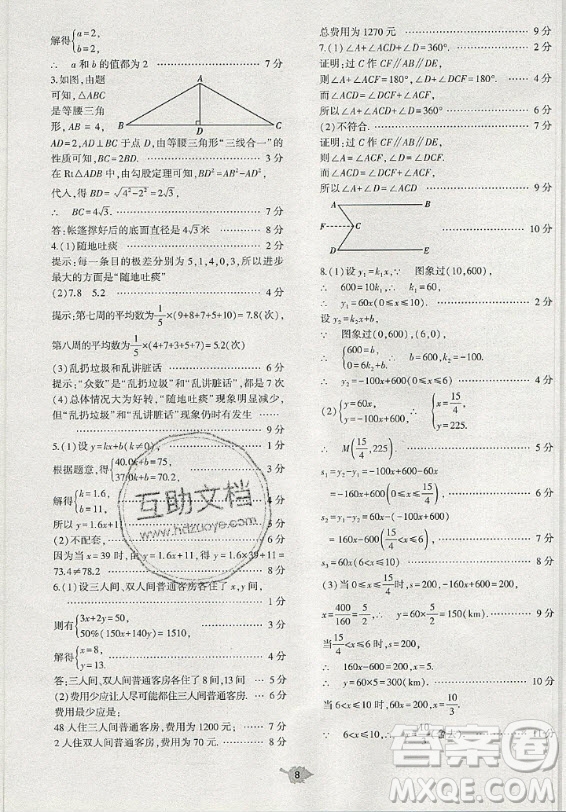 解得{a=2, b=2,
∴ a 和 b 的值都为 2 …… 7 分
3.如图,由题
可知,△ABC
是等腰三角
形,AB = 4,
A
B D C
AD=2,AD⊥BC 于点 D,由等腰三角形“三线合一”的
性质可知,BC=2BD. …… 3 分
在 Rt△ADC 中,由勾股定理可得,
代入,得 BD= √4²−2² =2√3,
∴ BC=4√3. …… 7 分
答:帐篷撑好后的底面直径是 4√3 米 …… 8 分
4.(1)随地吐痰 …… 2 分
提示:每一条目的极差分别为 5,1,4,0,3,所以进步
最大的方面是“随地吐痰”
(2)7.8 5.2 …… 4 分
提示:第七周的平均数为 1/5×(9+8+7+5+10)=7.8(次)
第八周的平均数为 1/5×(4+7+3+5+7)=5.2(次)
(3)乱扔垃圾和乱讲脏话 …… 6 分
提示:“众数”是“乱扔垃圾”和“乱讲脏话”,都是 7 次
(4)总体情况大为好转,“随地吐痰”现象明显减少,
但“乱扔垃圾”“乱讲脏话”现象仍时有发生 ……
…… 9 分
5.(1)设 y=kx+b(k≠0), …… 1 分
根据题意,得{40.0k+b=75, 37.0k+b=70.2,
解得{k=1.6, b=11,
所以 y=1.6x+11 …… 5 分
(2)不配套,
因为当 x=39 时,y=1.6x+11=1.6×39+11=
73.4≠78.2 …… 8 分
6.(1)设三人间、双人间普通客房各住了 x,y 间.
…… 1 分
则有{3x+2y=50, 50%(150x+140y)=1510,
解得{x=8, y=13.
答:三人间、双人间普通客房各住了 8 间,13 间 …… 5 分
(2)费用少应让人尽可能都住三人间普通客房,
费用最少应是:
48 人住三人间普通客房,费用为 1200 元; …… 7 分
2 人住双人间普通客房,费用为 70 元. …… 8 分
总费用为 1270 元 …… 9 分
7.(1)∠A+∠ACD+∠D=360°. …… 2 分
证明:过 C 作 CF∥AB∥DE,
则∠A+∠ACF=180°,∠D+∠DCF=180°. …… 4 分
而∠ACF+∠DCF=∠ACD,
所以∠A+∠ACD+∠D=360° …… 6 分
(2)不符合. …… 7 分
证明:过 C 作 CF∥AB∥DE,
则∠A=∠ACF,∠D=∠DCF.
而∠ACD=∠ACF+∠DCF,
所以∠A+∠D=∠ACD …… 9 分
A B
F C
D E
…… 10 分
8.(1)设 y₁=k₁x,∵ 图象过(10,600),
∴ 600=10k₁,∴ k₁=60.
∴ y₁=60x(0≤x≤10). …… 2 分
设 y₂=k₂x+b,
∵ 图象过(0,600),(6,0),
∴ {b=600, 0=6k₂+b. ∴ b=600,k₂=-100.
∴ y₂=-100x+600(0≤x≤6) …… 4 分
(2){y=60x, y=-100x+600. ∴ {x=15/4, y=225.
∴ M(15/4,225). …… 5 分
s₁=y₂-y₁=-100x+600-60x
=-160x+600(0≤x≤15/4), …… 6 分
s₂=y₁-y₂=60x+100x-600
=160x-600(15/4<x≤6), …… 7 分
s₃=60x(6<x≤10) …… 8 分
(3)当 0≤x≤15/4时,s=200,-160x+600=200,
x=400/160=5/2,∴ y=60×5/2=150(km). …… 9 分
当15/4<x≤6 时,s=200,
160x-600=200,∴ x=5.
∴ y=60×5=300(km). …… 10 分
当 6<x≤10 时,s=200,60x=200,x=10/3,
∵ 6<x≤10,∴ x=10/3(舍去). …… 11 分
8
互助文档
www.hdzuoye.com
答案圈
MXQE.COM